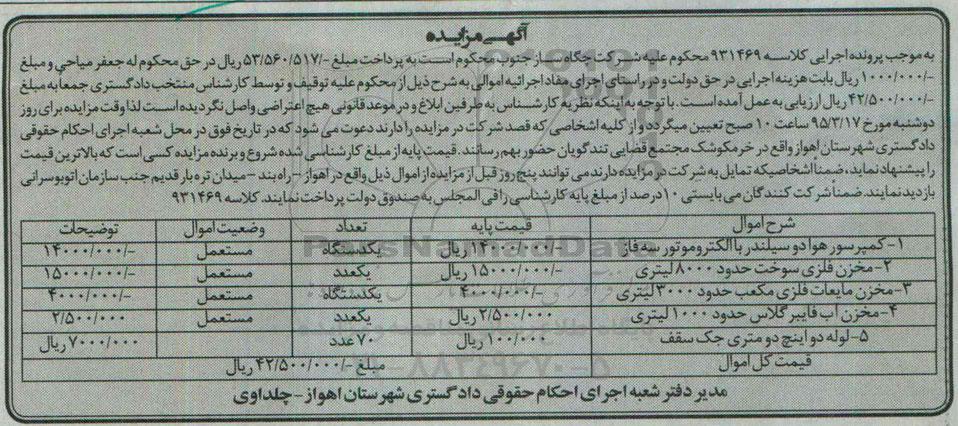 آگهی مزایده
به موجب پرونده اجرایی کلاسه ۹۳۱۴۶۹ محکوم علیه شرکت چگاه ساز جنوب محکوم است به پرداخت مبلغ -/۵۳/۵۶۰/۵۱۷ ریال در حق محکوم له جعفر میاحی و مبلغ
-/۱۰۰۰/۰۰۰ ریال بابت هزینه اجرایی در حق دولت و در راستای اجرای مفاد اجرائیه اموالی به شرح ذیل از محکوم علیه توقیف و توسط کارشناس منتخب دادگستری جمعا به مبلغ
-/۴۲/۵۰۰/۰۰۰ ریال ارزیابی به عمل آمده است. با توجه به اینکه نظریه کارشناس به طرفین ابلاغ و در موعد قانونی هیچ اعتراضی واصل نگردیده است لذا وقت مزایده برای روز
دوشنبه مورخ ۹۵/۳/۱۷ ساعت ۱۰ صبح تعیین میگردد و از کلیه اشخاصی که قصد شرکت در مزایده را دارند دعوت می شود که در تاریخ فوق در محل شعبه اجرای احکام حقوقی
دادگستری شهرستان اهواز واقع در خرمکوشک مجتمع قضایی تندگویان حضور بهم رسانند. قیمت پایه از مبلغ کارشناسی شده شروع و برنده مزایده کسی است که بالاترین قیمت
را پیشنهاد نماید، ضمناً اشخاصیکه تمایل به شرکت در مزایده دارند می توانند پنج روز قبل از مزایده از اموال ذیل واقع در اهواز – راه بند – میدان تره بار قدیم جنب سازمان اتوبوسرانی
بازدید نمایند. ضمناً شرکت کنندگان می بایستی ۱۰ درصد از مبلغ پایه کارشناسی را فی المجلس به صندوق دولت پرداخت نمایند. کلاسه ۹۳۱۴۶۹
شرح اموال قیمت پایه تعداد وضعیت اموال توضیحات
۱- کمپرسور هوا دو سیلندر با الکتروموتور سه فاز -/۱۴۰۰۰/۰۰۰ ریال یکدستگاه مستعمل -/۱۴۰۰۰/۰۰۰
۲- مخزن فلزی سوخت حدود ۸۰۰۰ لیتری -/۱۵۰۰۰/۰۰۰ ریال یکعدد مستعمل -/۱۵۰۰۰/۰۰۰
۳- مخزن مایعات فلزی مکعب حدود ۳۰۰۰ لیتری -/۴۰۰۰/۰۰۰ یکدستگاه مستعمل -/۴۰۰۰/۰۰۰
۴- مخزن آب فایبر گلاس حدود ۱۰۰۰ لیتری ۲/۵۰۰/۰۰۰ ریال یکعدد مستعمل ۲/۵۰۰/۰۰۰
۵- لوله دو اینچ دو متری جک سقف ۱۰۰/۰۰۰ ریال ۷۰ عدد ۷۰۰۰/۰۰۰ ریال
قیمت کل اموال مبلغ -/۴۲/۵۰۰/۰۰۰ ریال
مدیر دفتر شعبه اجرای احکام حقوقی دادگستری شهرستان اهواز – چلداوی
ParsNamadData
۰۲۱-۸۸۳۴۹۶۷۰-۵